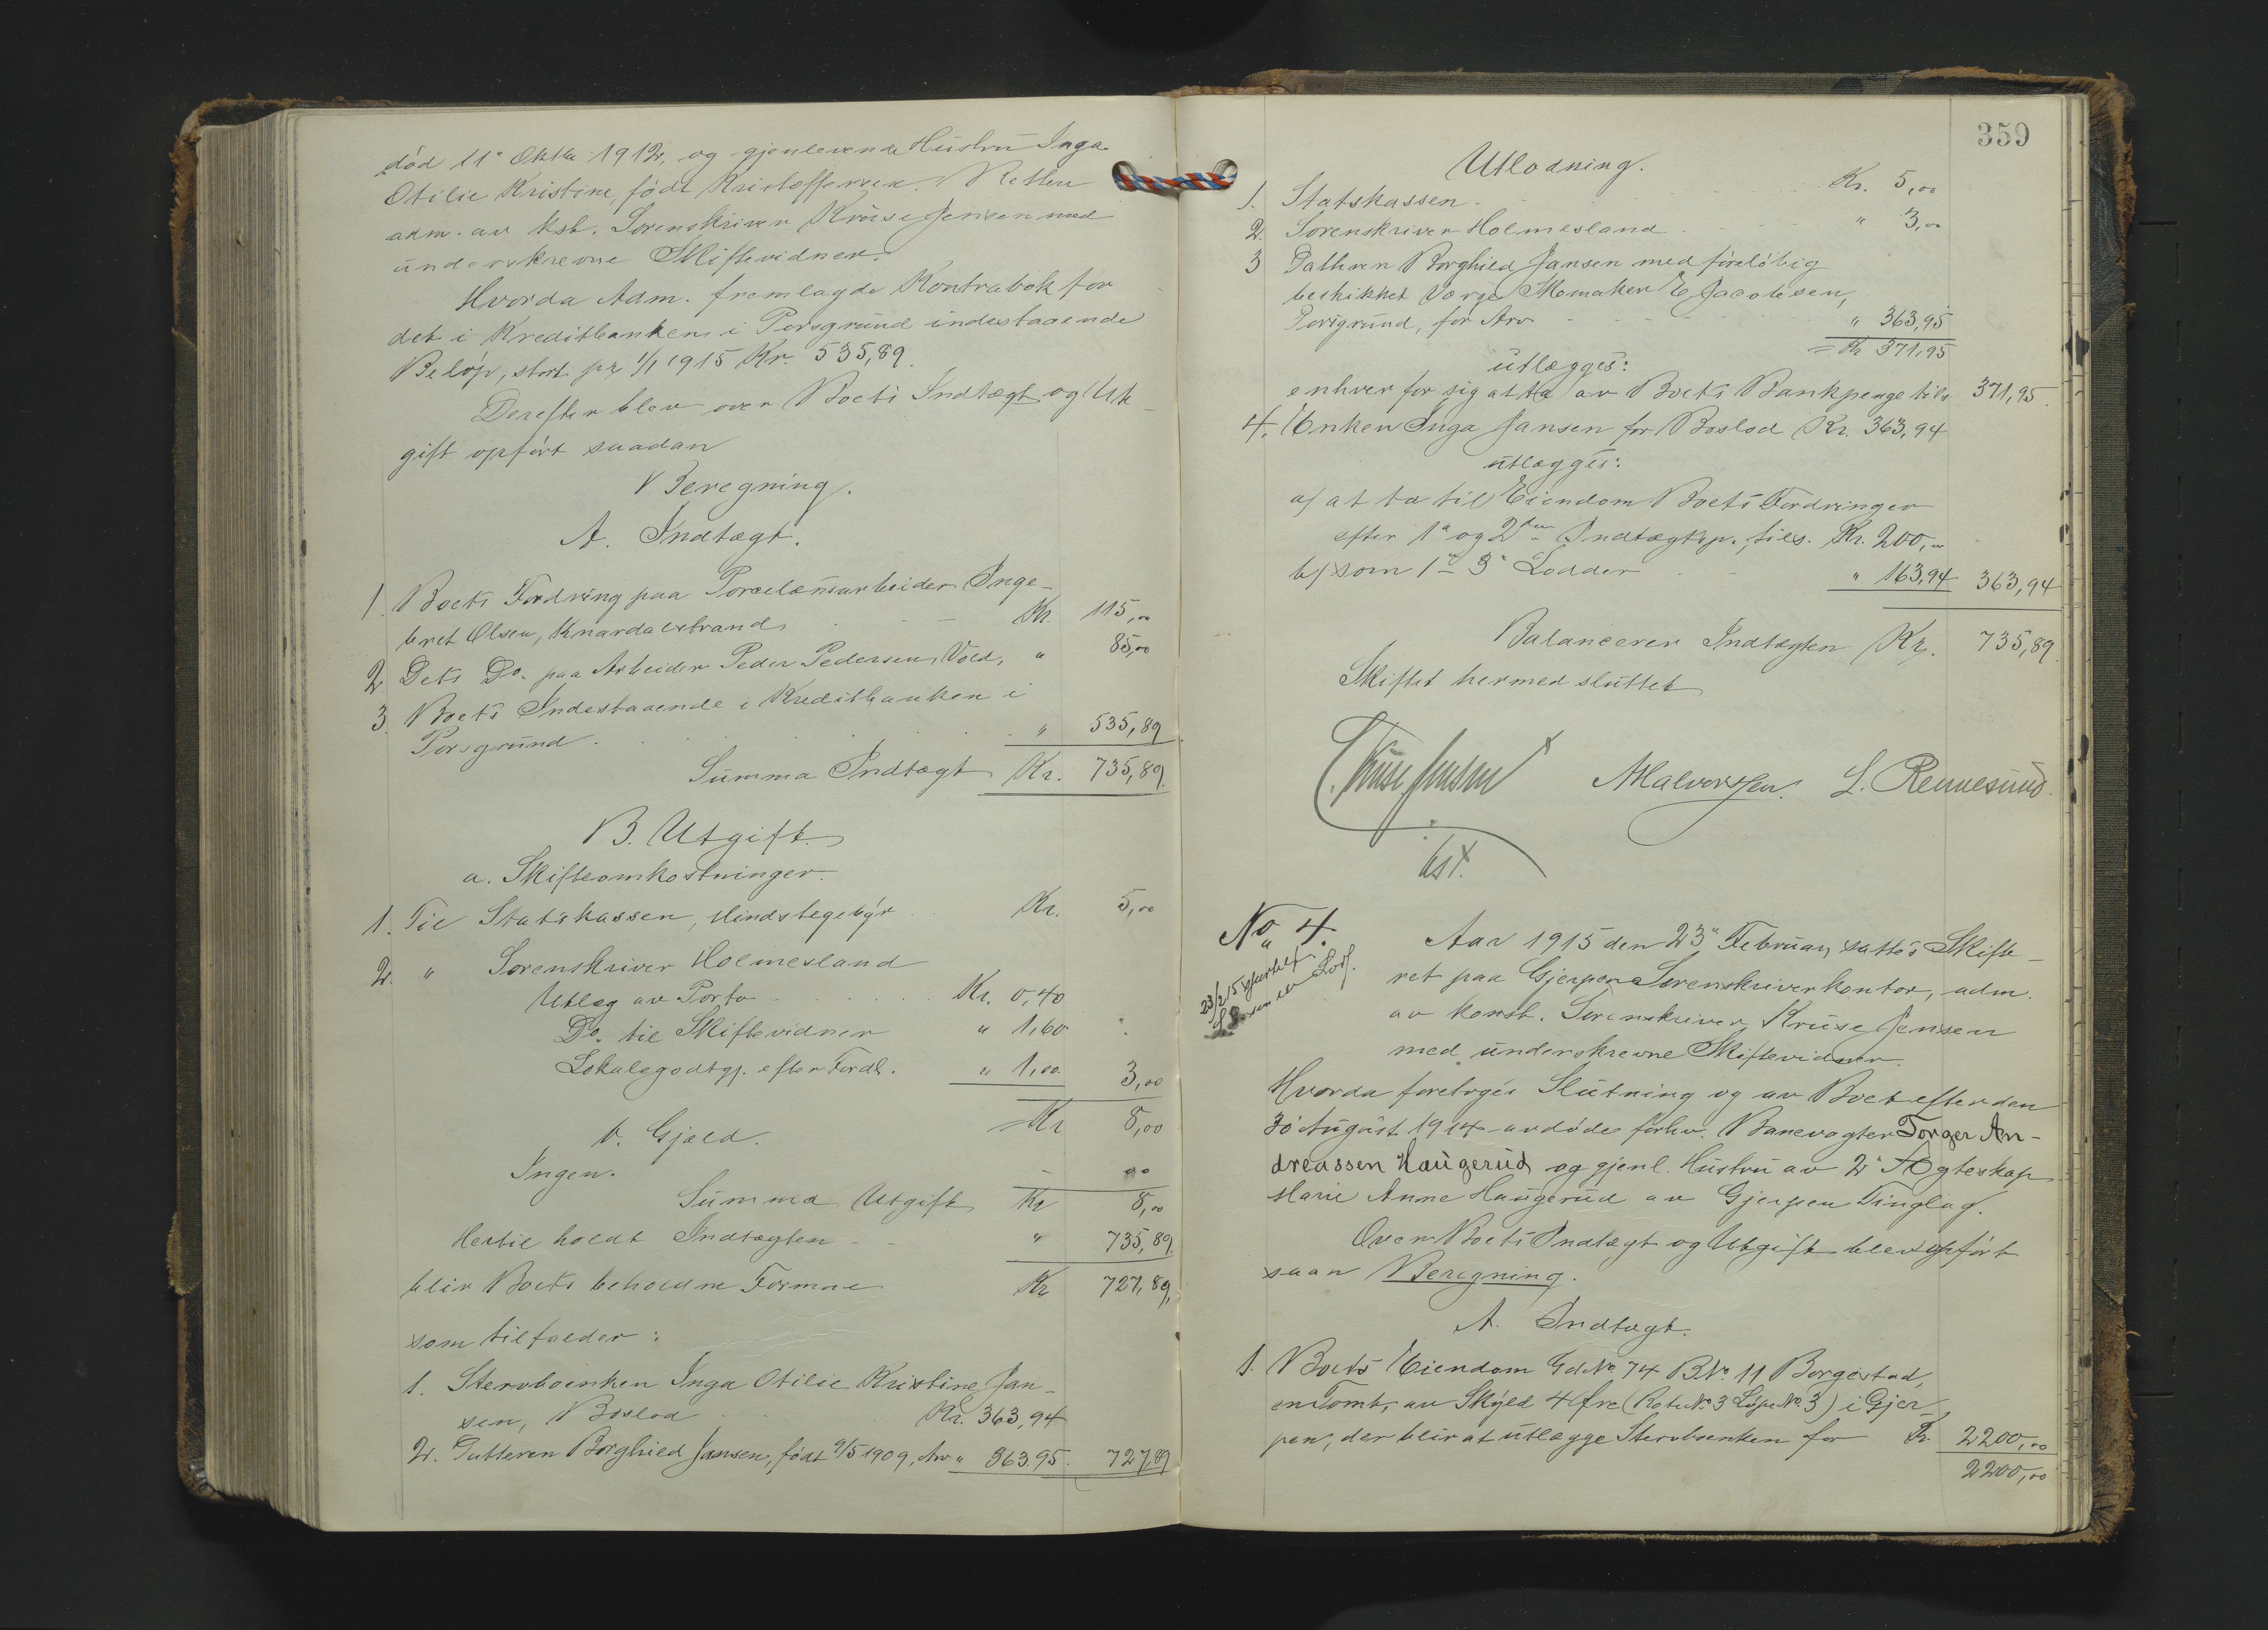 død 11' Oktbr 1912, og gjenlevende Hustru Inga
Otilie Kristine, født Kristoffersen. Retten
adm. av kst. Sorenskriver Kruse Jensen med
underskrevne Skiftevidner.
Hvorda Adm. fremlagde Kontrabok for
det i Kreditbanken i Porsgrund indestaaende
Beløp, stort pr 1/1 1915 Kr. 535,89.
Derefter blev over Boets Indtægt og Ut-
gift opført saadan
Beregning.
A. Indtægt.
1. Boets Fordring paa Porcelænsarbeider Inge-
bret Olsen, Knardalstrand Kr. 115,00
2 Dets Do. paa Arbeider Peder Pedersen, Vold, " 85,00
3. Boets Indestaaende i Kreditbanken i
Porsgrund . . . . . . " 535,89
Summa Indtægt Kr. 735,89.
B. Utgift.
a. Skifteomkostninger.
1. Til Statskassen, Mindstegebyr Kr. 5,00
2. " Sorenskriver Holmesland
Utlæg av Porto . . . . Kr. 0,40
Do. til Skiftevidner " 1,60
Lokalegodtgj. efter Fordl. " 1,00 3,00
= Kr 8,00
b. Gjæld.
Ingen. - 00
Summa Utgift Kr 8,00
Hertil holdt Indtægten - - " 735,89
blir Boets beholdne Formue Kr 727,89,
som tilfalder:
1. Stervboenken Inga Otilie Kristine Jan-
sen, Boslod Kr. 363,94
2. Datteren Borghild Jansen, født 9/5 1909, Arv " 363.95. 727,89
359
Utlodning.
1. Statskassen . . . Kr. 5,00
2. Sorenskriver Holmesland . . . " 3,00
3 Datteren Borghild Jansen med foreløbig
beskikket Værge Skomaker E. Jacobsen,
Porsgrund, for Arv . . . " 363,95
= Kr 371,95
utlægges:
enhver for sig at ta av Boets Bankpenge tils 371,95.
4. Enken Inga Jansen for Boslod Kr. 363,94
utlægges:
a/ at ta til Eiendom Boets Fordringer
efter 1ste og 2den Indtægtsp., tils. Kr. 200,00
b/ som 1 - 3' Lodder . . " 163,94 363,94
Balancerer Indtægten Kr. 735,89.
Skiftet hermed sluttet
C. Kruse Jensen
kst.
A Halvorsen. L. Rennesund.
No 4.
Aar 1915 den 23' Februar, sattes Skifte-
ret paa Gjerpen Sorenskriverkontor, adm.
av konst. Sorenskriver Kruse Jensen
med underskrevne Skiftevidner.
Hvorda foretoges Slutning og av Boet efter den
30 August 1914 avdøde forhv. Banevogter Torger An-
dreassen Haugerud og gjenl. Hustru av 2' Ægteskap
Marie Anne Haugerud av Gjerpen Tinglag.
Over Boets Indtægt og Utgift blev opført
saan Beregning.
A. Indtægt.
1. Boets Eiendom Gd No 74 B No. 11 Borgestad,
en Tomt, av Skyld 4 Øre (Rote No. 3 Løpe No. 3) i Gjer-
pen, der blir at utlægge Stervboenken for Kr. 2200,00
2200,00